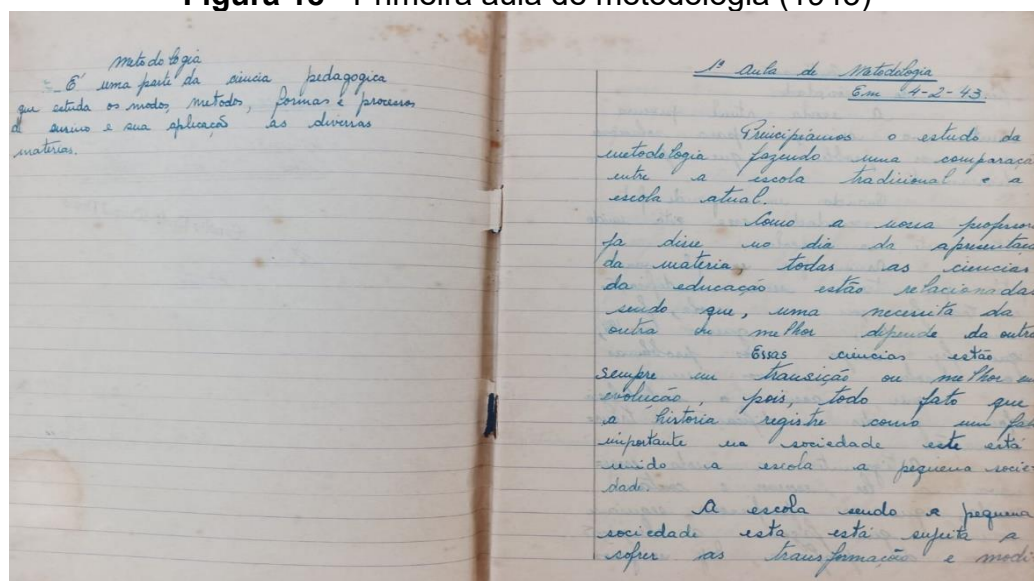 Primeira aula de metodologia (1943)
Metodologia
_ É uma parte da ciencia pedagogica
que estuda os modos, metodos, formas e processos
de ensino e sua aplicação ás diversas
materias.
1ª Aula de Metodologia
Em 4-2-43.
Principiamos o estudo da
metodologia fazendo uma comparaçã
entre a escola tradicional e a
escola atual.
Como a nossa professora
ja disse no dia da apresentaç
da matéria, todas as ciencias
da educação estão relacionadas
sendo que, uma necessita da
outra ou melhor depende da outra,
Essas ciencias estão
sempre em transição ou melhor em
evolução, pois, todo fato que
a historia registre como um fat
importante na sociedade este está
unido a escola a pequena socie-
dade.
A escola sendo a pequena
sociedade esta está sujeita a
sofrer as transformação e modi